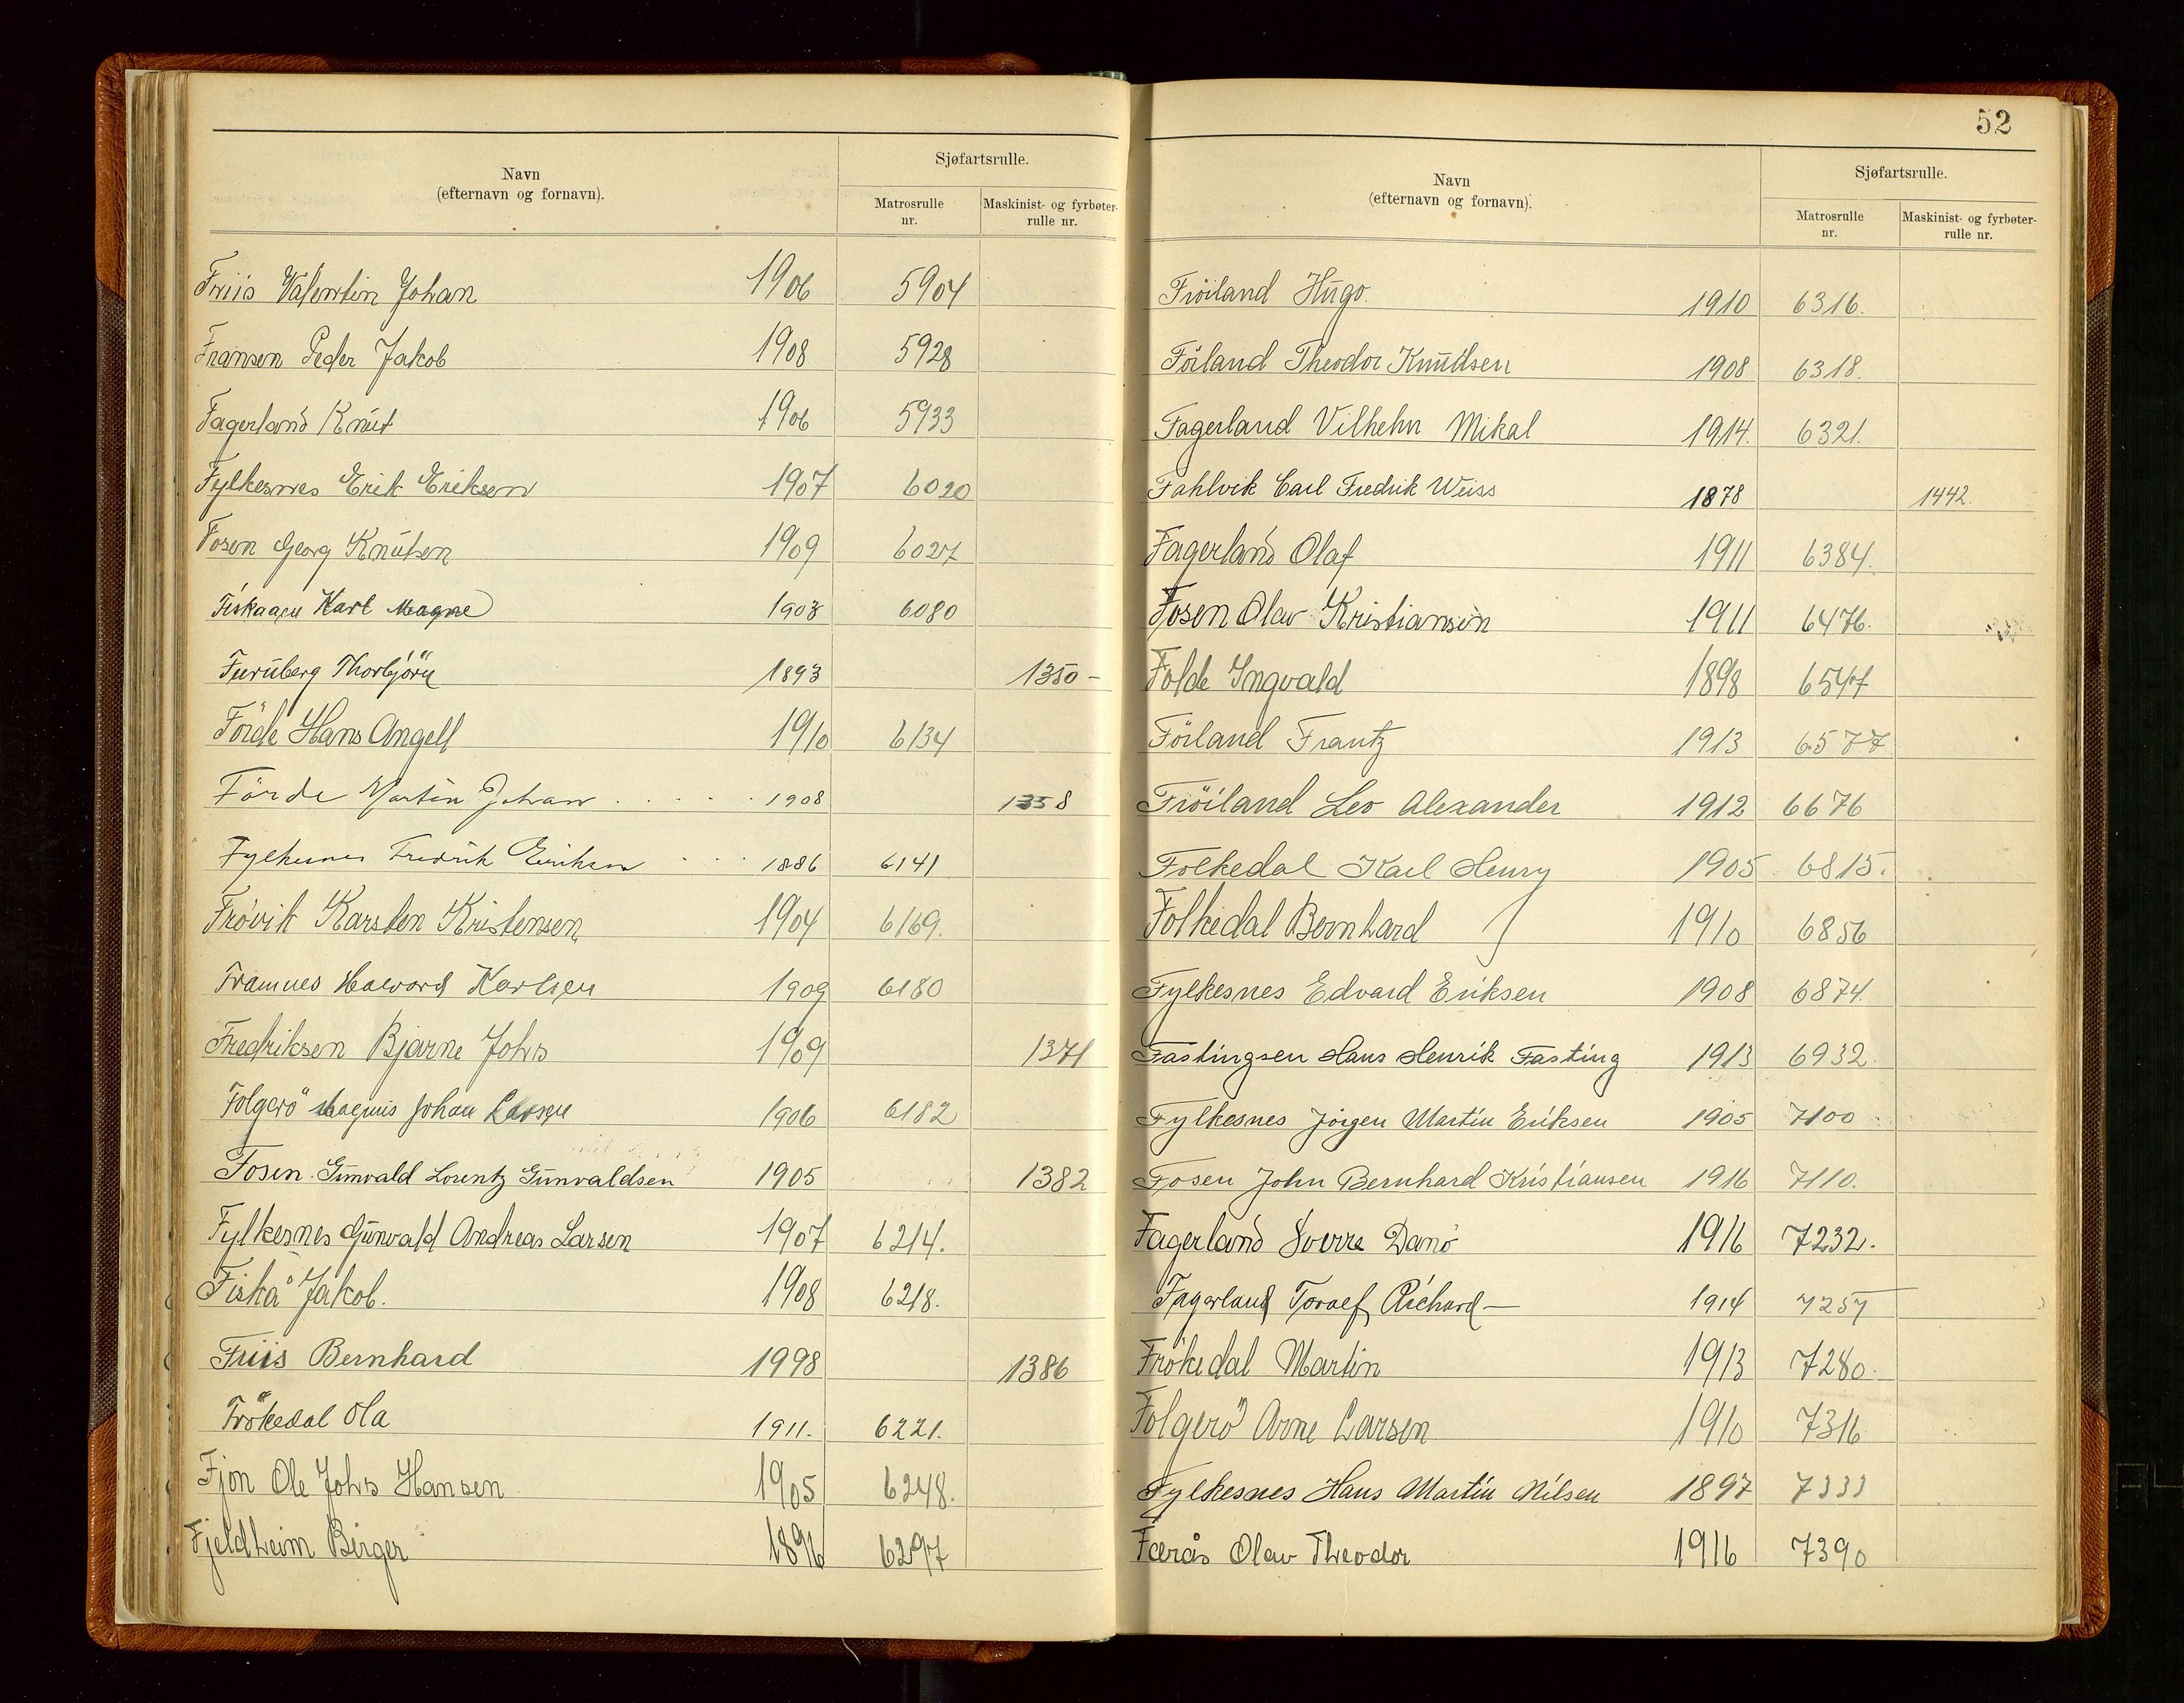 Navn
(efternavn og fornavn).
Sjøfartsrulle.
Matrosrulle nr.
Maskinist- og fyrbøter-rulle nr.
Friis Valentin Johan 1906 5904
Fransen Peder Jakob 1908 5928
Fagerland Knut 1906 5933
Fylkesnes Erik Eriksen 1907 6020
Fosen Georg Knutsen 1909 6027
Fiskaaen Karl Magne 1903 6080
Furuberg Thorbjörn 1893 1350 -
Förde Hans Angell 1910 6134
Förde Martin Johan 1908 1358
Fylkesnes Fredrik Eriksen 1886 6141
Frövik Karsten Kristensen 1904 6169.
Framnes Havard Karlsen 1909 6180
Fredriksen Bjarne Johs 1909 1371
Folgerö Magnus Johan Larsen 1906 6182
Fosen Gunvald Lorentz Gunvaldsen 1905 1382
Fylkesnes Gunvald Andreas Larsen 1907 6214.
Fiskå Jakob. 1908 6218.
Friis Bernhard 1998 1386
Frökedal Ola 1911. 6221.
Fjon Ole Johs Hansen 1905 6248.
Fjeldheim Birger 1896 6297
52
Navn
(efternavn og fornavn).
Sjøfartsrulle.
Matrosrulle nr.
Maskinist- og fyrbøter-rulle nr.
Fröiland Hugo. 1910 6316.
Föiland Theodor Knudsen 1908 6318.
Fagerland Vilhelm Mikal 1914. 6321.
Fahlvik Carl Fredrik Weiss 1878 1442.
Fagerland Olaf 1911 6384.
Fosen Olav Kristiansen 1911 6476.
Folde Ingvald 1898 6547
Föiland Frantz 1913 6577
Fröiland Leo Alexander 1912 6676
Folkedal Karl Henry 1905 6815.
Folkedal Bernhard 1910 6856
Fylkesnes Edvard Eriksen 1908 6874.
Fastingsen Hans Henrik Fasting 1913 6932.
Fylkesnes Jörgen Martin Eriksen 1905 7100
Fosen John Bernhard Kristiansen 1916 7110.
Fagerland Sverre Danö 1916 7232.
Fagerland Toralf Richard — 1914 7257
Frökedal Martin 1913 7280.
Folgerö Arne Larsen 1910 7316
Fylkesnes Hans Martin Nilsen 1897 7333
Færås Olav Theodor 1916 7390